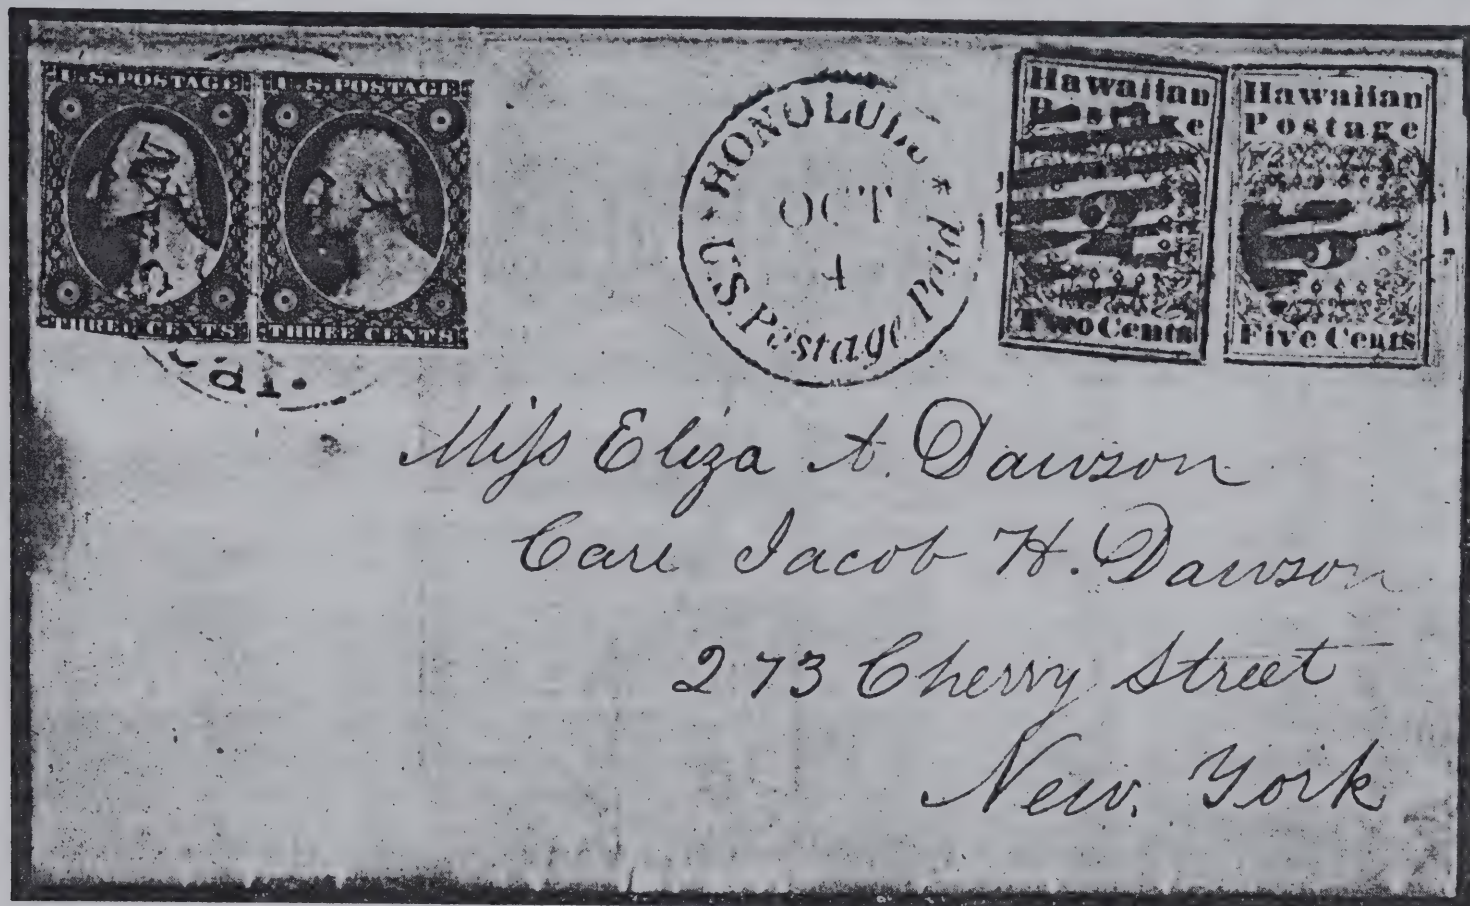 U.S. POSTAGE
THREE CENTS
U.S. POSTAGE
THREE CENTS
Cal.
* HONOLULU *
OCT
4
U.S. Postage Paid
Hawaiian
Postage
2
Two Cents
Hawaiian
Postage
5
Five Cents
Miss Eliza A. Dawson
Care Jacob H. Dawson
273 Cherry Street
New. York